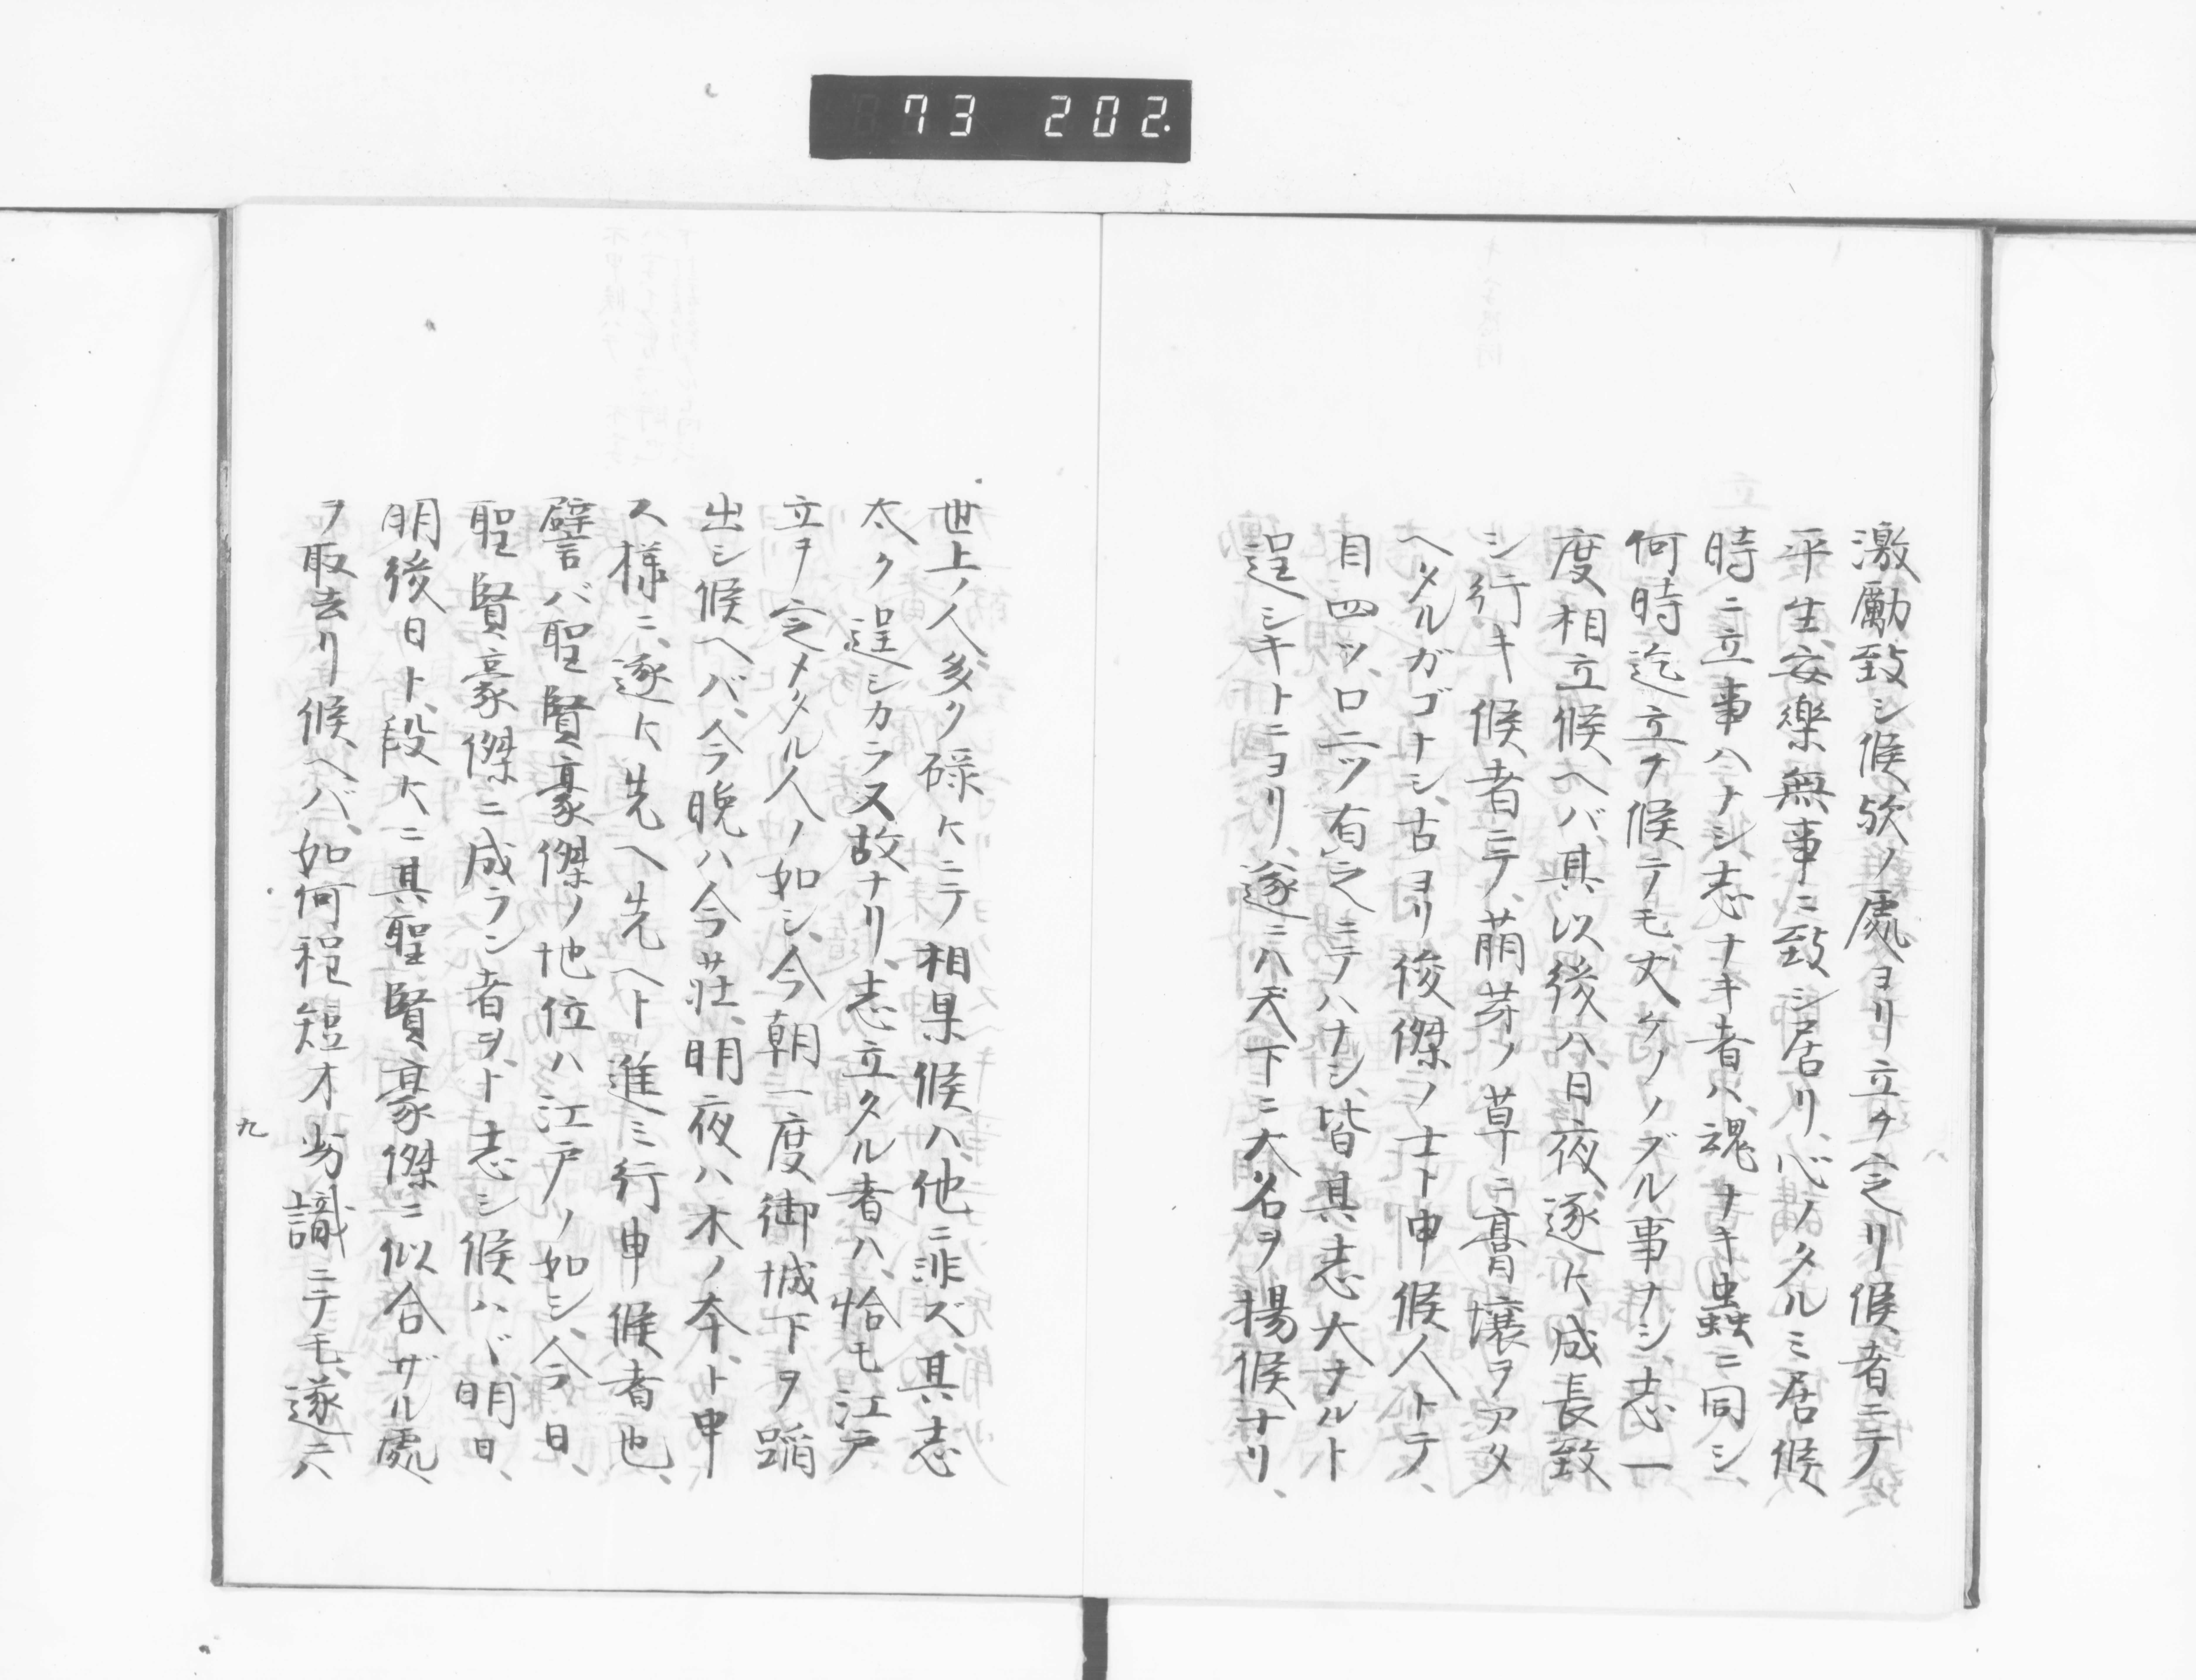 73 202.
激勵致シ候歟ノ處ヨリ立チ定リ候者ニテ、
平生安樂無事ニ致シ居リ、心ノタルミ居候
時ニ立事ハナシ、志ナキ者ハ、魂ナキ蟲ニ同シ、
何時迄立チ候テモ丈ケノノブル事ナシ、志一
度相立候ヘバ、其以後ハ日夜逐々成長致
シ行キ候者ニテ、萠芽ノ草ニ膏壤ヲアタ
ヘタルガゴトシ、古ヨリ俊傑ノ士ト申候人トテ、
目四ツ口二ツ有之ニテハナシ、皆其志大ナルト
逞シキトニヨリ、遂ニハ天下ニ大名ヲ揚候ナリ、
世上ノ人多ク碌々ニテ相果候ハ、他ニ非ズ、其志
太ク逞シカラヌ故ナリ、志立タル者ハ、恰モ江戸
立ヲ定メタル人ノ如シ、今朝一度御城下ヲ蹈
出シ候ヘバ、今晩ハ今荘、明夜ハ木ノ本ト申
ス様ニ、逐々先ヘ先ヘト進ミ行申候者也、
譬ヘバ聖賢豪傑ノ地位ハ江戸ノ如シ、今日、
聖賢豪傑ニ成ラン者ヲト志シ候ハヾ、明日、
明後日ト、段々ニ其聖賢豪傑ニ似合ザル處
ヲ取去リ候ヘバ、如何程短才劣識ニテモ、遂ニハ
九